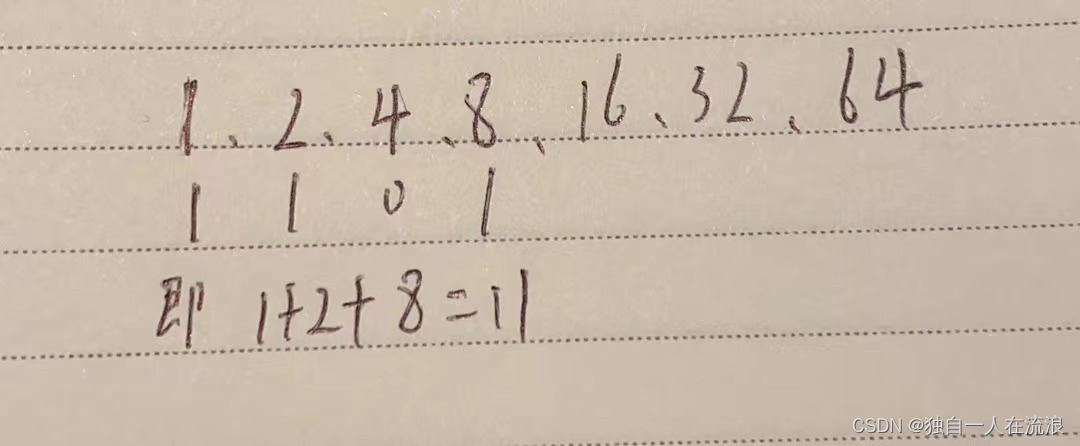 1、2、4、8、16、32、64
1 1 0 1
即 1+2+8=11
CSDN @独自一人在流浪